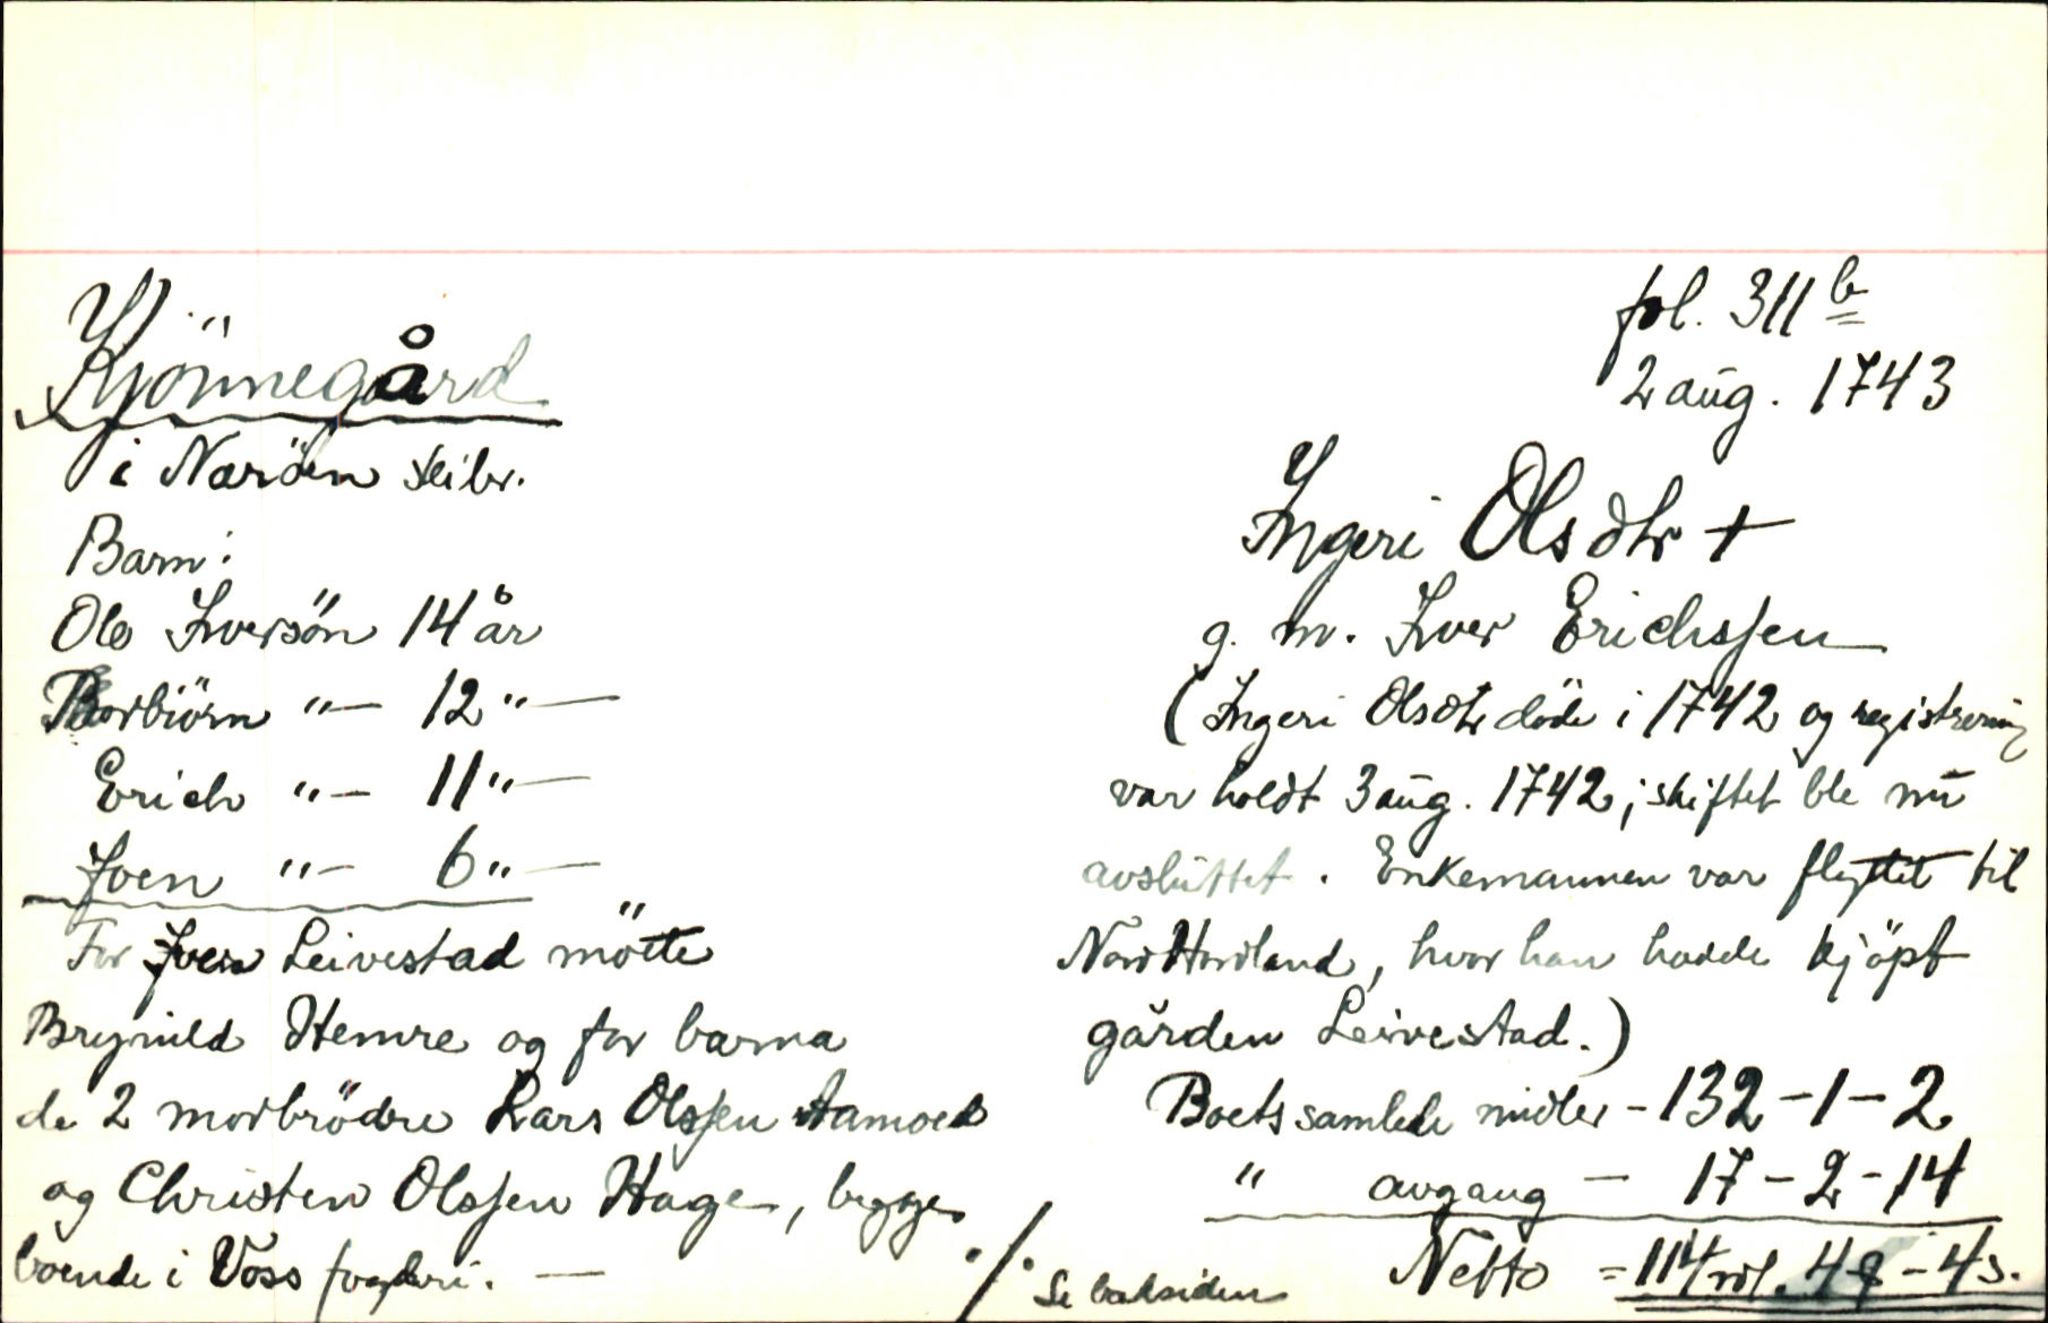 Kjönnegård
i Naröen skibr.
Barn:
Ole Iversön 14 år
Torbiörn "— 12 "—
Erich "— 11 "—
Joen "— 6 "—
For Iver Leivestad mötte
Brynild Hemre og for barna
de 2 morbrödre Lars Olssen Aamoed
og Christen Olssen Hage, begge
boende i Voss fogderi. —
./. Se baksiden
fol. 311 b
2 aug. 1743
Ingeri Olsdtr +
g. m. Iver Erichssen
(Ingeri Olsdtr döde i 1742 og registrering
var holdt 3 aug. 1742; skiftet ble nu
avsluttet. Enkemannen var flyttet til
NordHordland, hvor han hadde kjöpt
gården Leivestad.)
Boets samlede midler - 132 - 1 - 2
" avgang - 17 - 2 - 14
Netto = 114 rdl. 4 - 4 s.